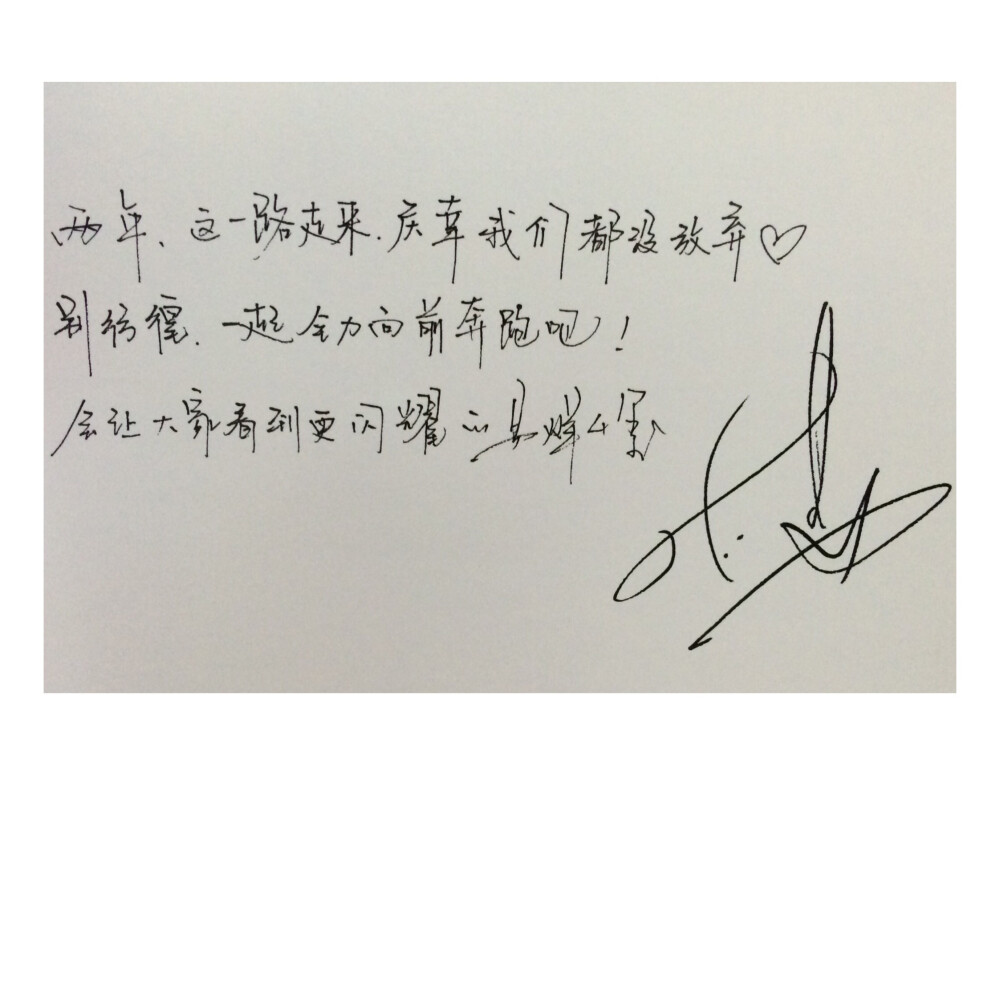 两年、这一路走来.庆幸我们都没放弃♡
别彷徨.一起全力向前奔跑吧！
会让大家看到更闪耀的